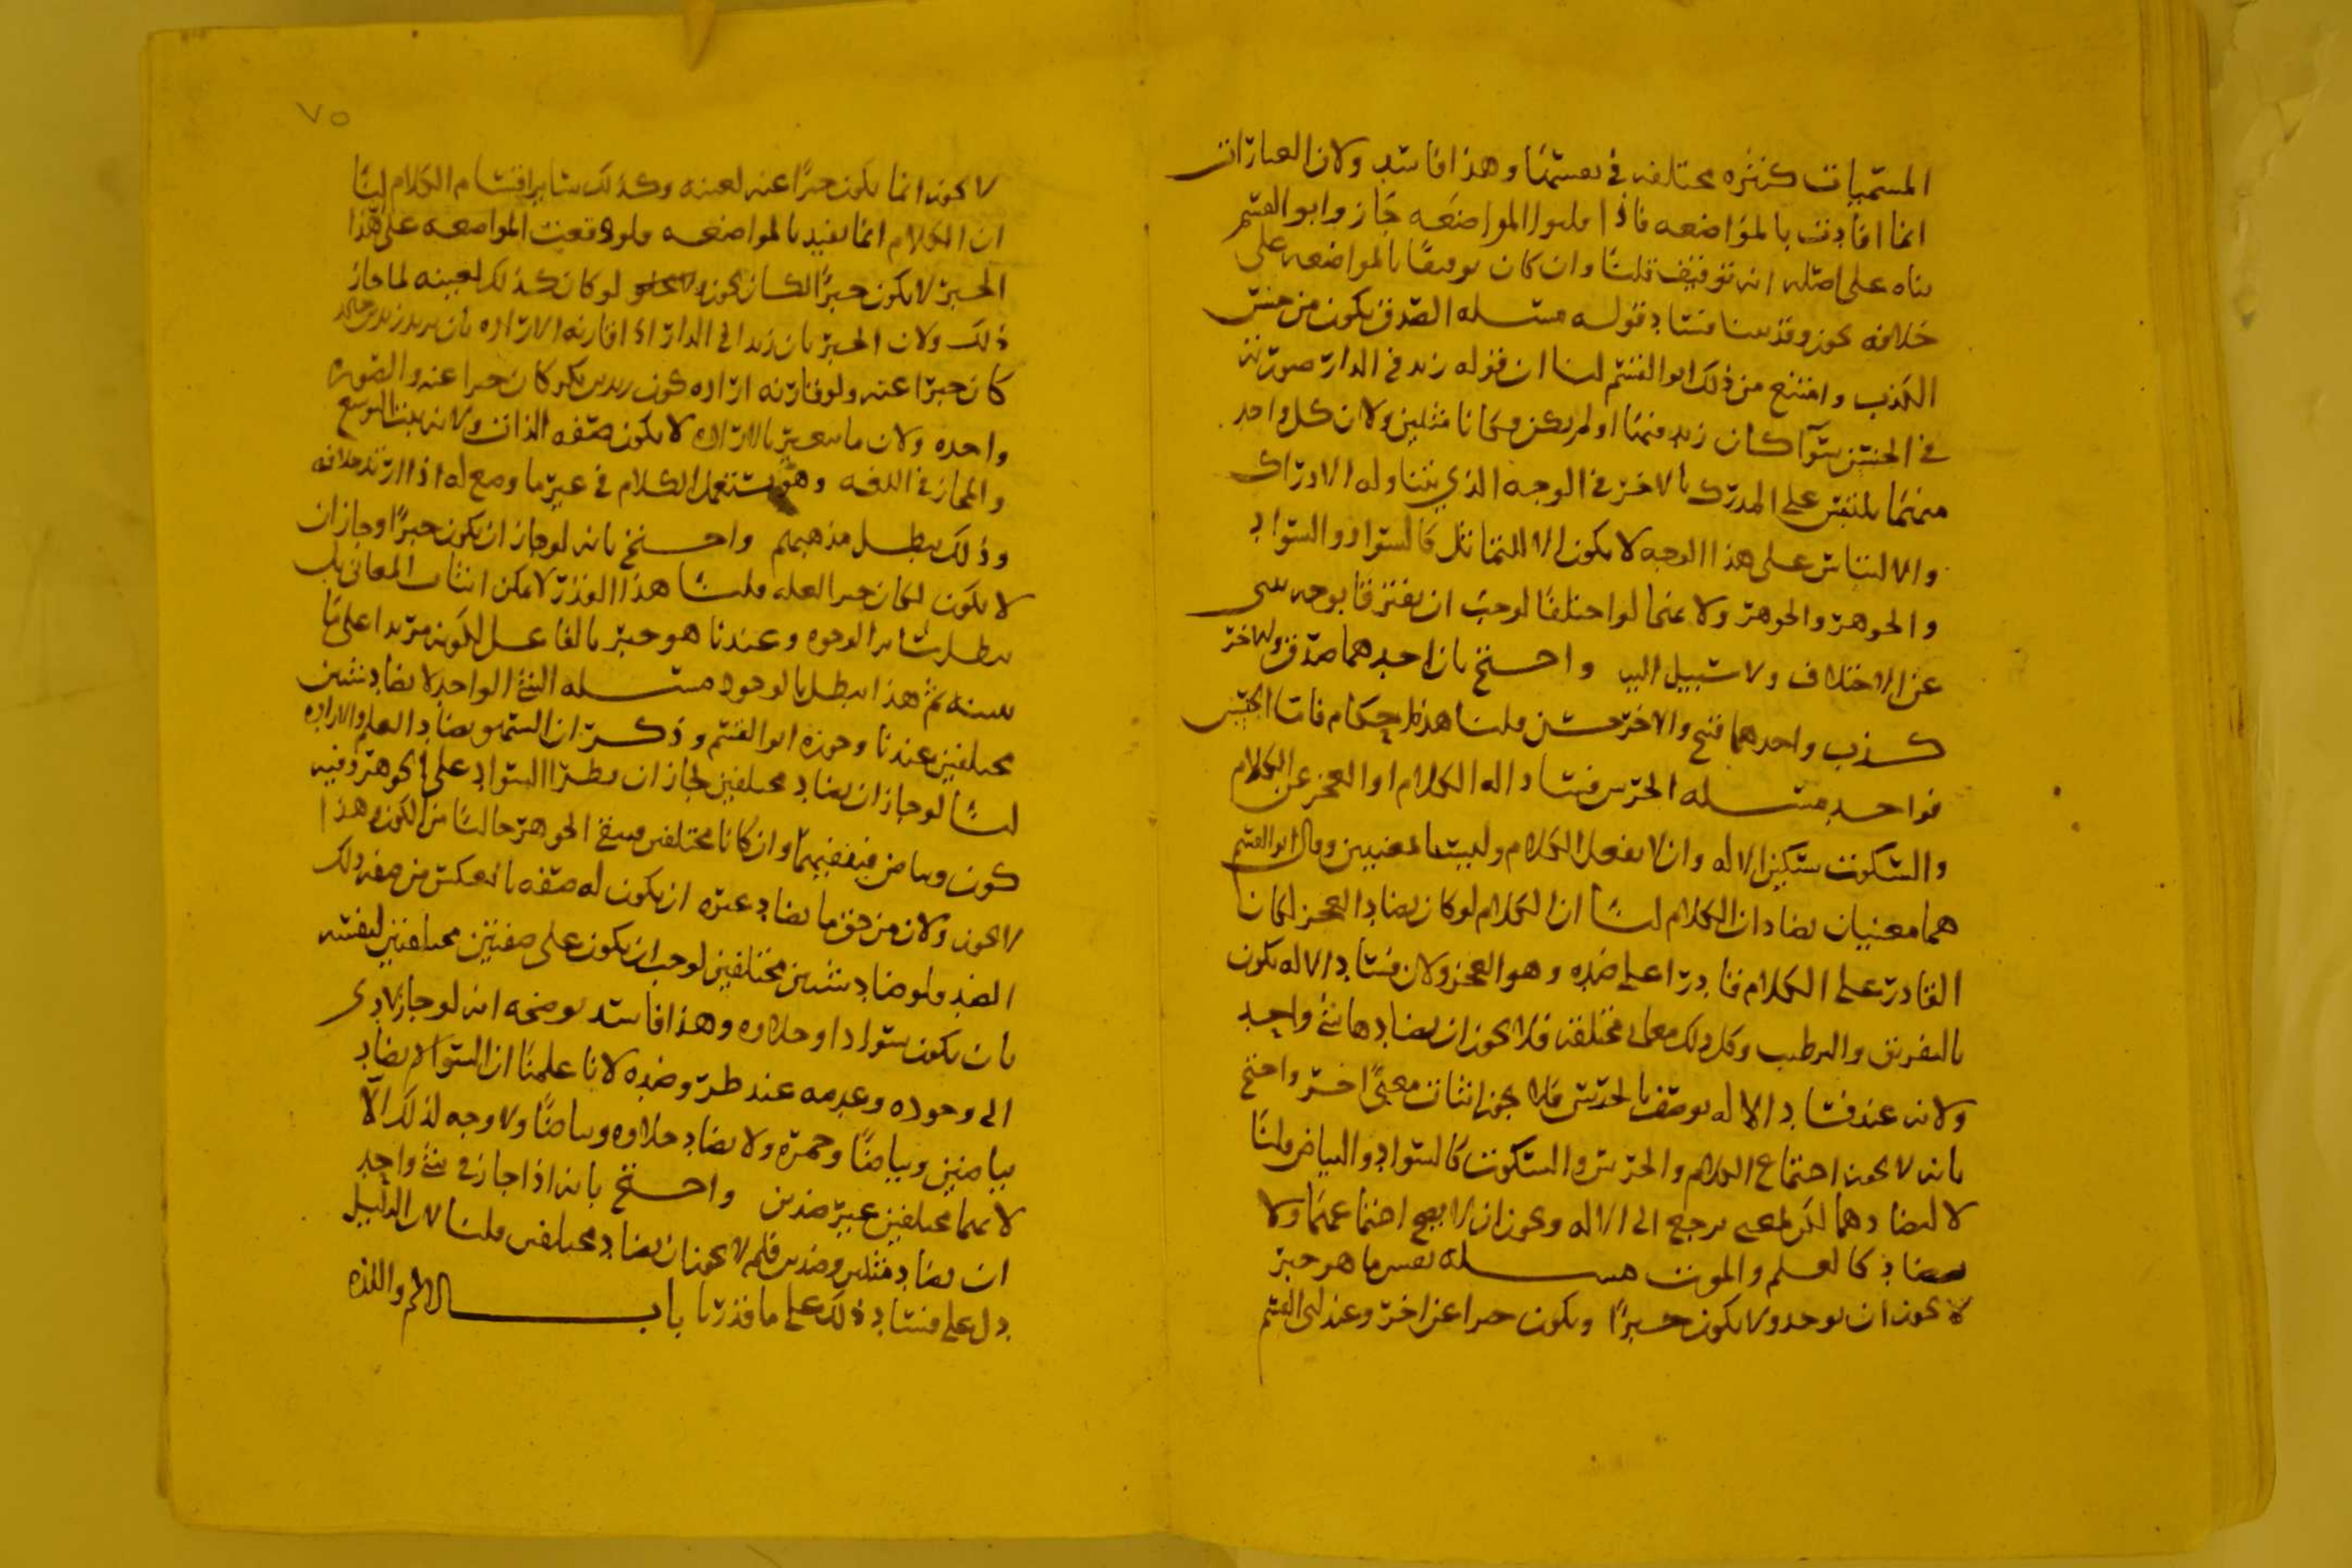 المسميات كثيره مختلفه في نفسها وهذا فاسد ولان العبارات
انما افادت بالمواضعه فاذا قلبوا المواضعه جاز وابو القسم
بناه على اصله انه توقيف قلنا وان كان توقيفا بالمواضعه على
خلافه يجوز وقد بينا فساد قوله مسله الصدق يكون من جنس
الكذب وامتنع من ذلك ابو القسم لنا ان قوله زيد في الدار صورته
في الحسن سوآ كان زيد فيها او لم يكن وكانا مثلين ولان كل واحد
منهما يلتبس على المدرك بالاخر في الوجه الذي يتناوله الادراك
والالتباس على هذا الوجه لا يكون الا للتماثل كالسواد والسواد
والجوهر والجوهر ولانهما لو اختلفا لوجب ان يفترقا بوجه ينبي
عن الاختلاف ولا سبيل اليه واحتج بان احدهما صدق والاخر
كذب واحدهما قبح والاخر حسن قلنا هذه احكام فاما الجنس
فواحد مسله الخرس فساد اله الكلام او العجز عن الكلام
والسكوت تسكين الاله وان لا يفعل الكلام وليستا بمعنيين وقال ابو القسم
هما معنيان يضادان الكلام لنا ان الكلام لو كان يضاد العجز لكان
القادر على الكلام قادرا على ضده وهو العجز ولان فساد الاله يكون
بالتفريق والترطيب وكل ذلك معاني مختلفه فلا يجوز ان يضادها شئ واحد
ولانه عند فساد الاله يوصف بالخرس فلا يجوز اثبات معنى اخر واحتج
بانه لا يجوز اجتماع الكلام والخرس والسكوت كالسواد والبياض قلنا
لا لتضادهما لكن لمعنى يرجع الى الاله ويجوز ان لا يصح اجتماعهما ولا
تضاد كالعلم والموت مسله نفس ما هو خبر
لا يجوز ان يوجد ولا يكون خبرا ويكون خبرا عن اخر وعند ابي القسم
٧٥
لا يجوز انما يكون خبرا عنه لعينه وكذلك سائر اقسام الكلام لنا
ان الكلام انما يفيد بالمواضعه ولو وقعت المواضعه على هذا
الخبر لا يكون خبرا لكان يجوز لو كان كذلك لعينه لما جاز
ذلك ولان الخبر بان زيدا في الدار اذا قارنه الاراده بان يريد زيد بن خالد
كان خبرا عنه ولو قارنه اراده كون زيد بن بكر كان خبرا عنه والصوره
واحده ولان ما يتغير بالاراده لا يكون صفه الذات ولانه يثبت التوسع
والمجاز في اللغه وهو يستعمل الكلام في غير ما وضع له اذا ارتد خلافه
وذلك يبطل مذهبهم واحتج بانه لو جاز ان يكون خبرا وجاز ان
لا يكون لكان خبرا لعله قلنا هذا القدر لا يمكن اثبات المعاني به
يبطل سائر الوجوه وعندنا هو خبر بالفاعل لكونه مريدا على ما
نبينه ثم هذا يبطل بالوجود مسله الشئ الواحد لا يضاد شيئين
مختلفين عندنا وجوزه ابو القسم وذكر ان السهو يضاد العلم والاراده
لنا لو جاز ان يضاد مختلفين لجاز ان يطرا السواد على الجوهر وفيه
كون وبياض فينفيهما وان كانا مختلفين فيبقى الجوهر خاليا من الكون وهذا
لا يجوز ولان من حق ما يضاد غيره ان يكون له صفه بالعكس من صفه ذلك
الضد فلو ضاد شيئين مختلفين لوجب ان يكون على صفتين مختلفتين لنفسه
بان يكون سوادا وحلاوه وهذا فاسد يوضحه انه لو جاز لادى
الى وجوده وعدمه عند طرو ضده لانا علمنا ان السواد يضاد
بياضين وبياضا وحمره ولا يضاد حلاوه وبياضا ولا وجه لذلك الا
لانهما مختلفين غير ضدين واحتج بانه اذا جاز في شئ واحد
ان يضاد مثلين وضدين فلم لا يجوز ان يضاد مختلفين قلنا لان الدليل
دل على فساد ذلك على ما قدرنا باب الالم واللذه